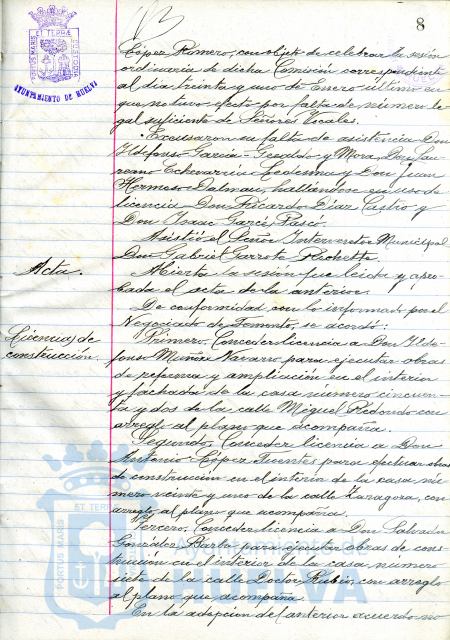 8
PORTUS MARIS ET TERRÆ CUSTODIA
AYUNTAMIENTO DE HUELVA
López Romero, con objeto de celebrar la sesión
ordinaria de dicha Comisión correspondiente
al dia treinta y uno de Enero último en
que no tuvo efecto por falta de número le-
gal suficiente de Señores Vocales.
Excusaron su falta de asistencia Don
Ildefonso García-Geojido y Mora, Don Lau-
reano Echevarría Ledesma y Don Juan
Hermoso Dalmau, hallándose en uso de
licencia Don Ricardo Díaz Castro y
Don Isaac Garcés Pascé.
Asistió el Señor Interventor Municipal
Don Gabriel Garrote
Acta.
Abierta la sesión fue leida y apro-
bada el acta de la anterior.
De conformidad con lo informado por el
Negociado de Fomento, se acordó:
Licencias de
construcción.
Primero. Conceder licencia a Don Ilde-
fonso Muñoz Navarro para ejecutar obras
de reforma y ampliación en el interior
y fachada de la casa número cincuen-
ta y dos de la calle Miguel Redondo con
arreglo al plano que acompaña.
Segundo. Conceder licencia a Don
Antonio López Fuentes para efectuar obras
de construcción en el interior de la casa nú-
mero veinte y uno de la calle Zaragoza, con
arreglo al plano que acompaña.
Tercero. Conceder licencia a Don Salvador
González Barba para ejecutar obras de cons-
trucción en el interior de la casa número
siete de la calle Doctor Rubio, con arreglo
al plano que acompaña.
En la adopción del anterior acuerdo no
Ayuntamiento de
HUELVA
PORTUS MARIS ET TERRÆ